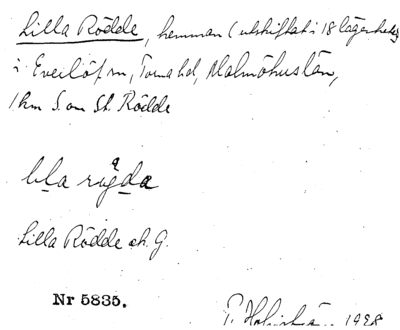 Lilla Rödde, hemman (utskiftat i 18 lägenheter
i Everlöf sn, Torna hd, Malmöhus län,
1 km S. om St. Rödde
Lilla Rödde ek. G.
Nr 5835.
1928